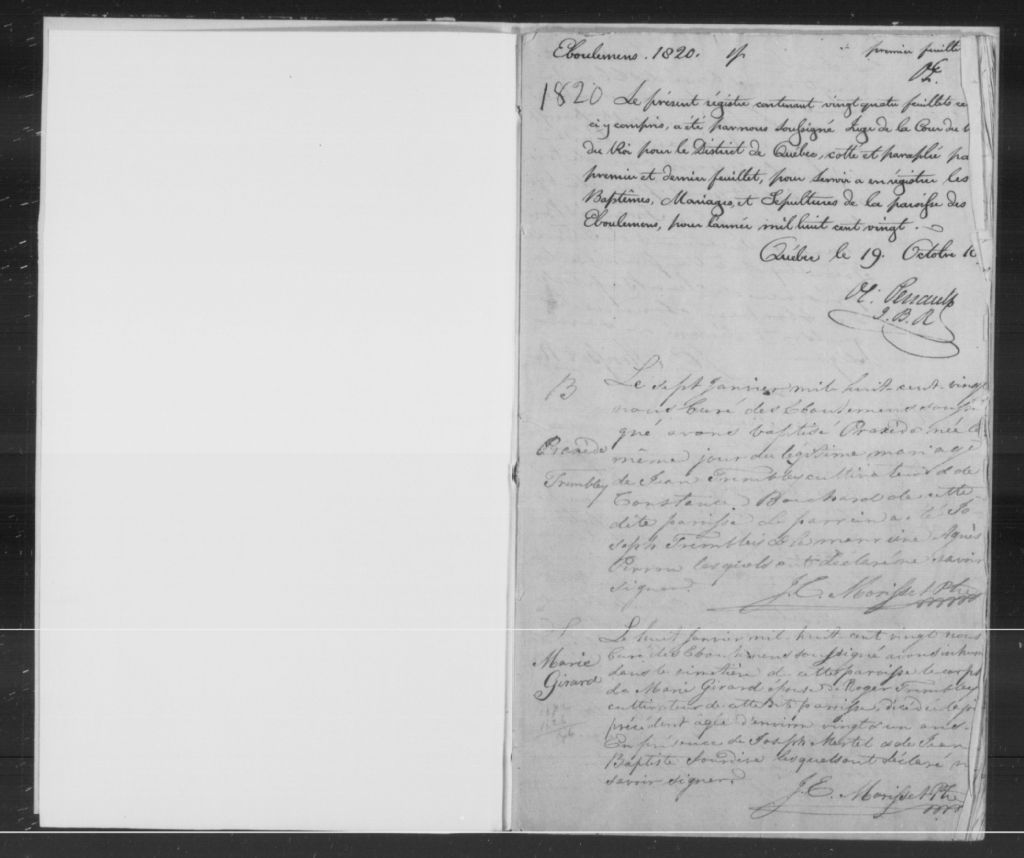 Eboulemens. 1820.
premier feuille
OP.
1820 Le présent régistre contenant vingt quatre feuillets ce
ci y compris, a été par nous soussigné Juge de la Cour du
du Roi pour le District de Québec, cotté et paraphé
premier et dernier feuillet, pour servir a enrégistrer les
Baptêmes, Mariages, et Sepultures de la paroisse des
Eboulemens, pour l'année mil huit cent vingt.
Québec le 19. Octobre
Ol. Perrault
J. B. R
B Le sept Janvier mil huit cent vingt
nous Curé des Eboulemens soussi
gné avons baptisé Praxède née le
Praxède même jour du légitime mariage
Trembley de Jean Trembley cultivateur & de
Constance Bouchard de cette
dite paroisse Le parrein a été Jo
seph Tremblei & la marreine Agnès
Perron lesquels ont déclaré ne savoir
signer.
J. E. Morisset Ptre
S Le huit Janvier mil huit cent vingt nous
Marie Curé des Eboulemens soussigné avons inhumé
Girard dans le cimetière de cette paroisse le corps
de Marie Girard épouse de Roger Trembley
cultivateur de cette dite paroisse, décédée le
précédent agée d'environ vingt & un ans.
En présence de Joseph Martel & de Jean
Baptiste lesquels ont déclaré
savoir signer.
J. E. Morisset Ptre